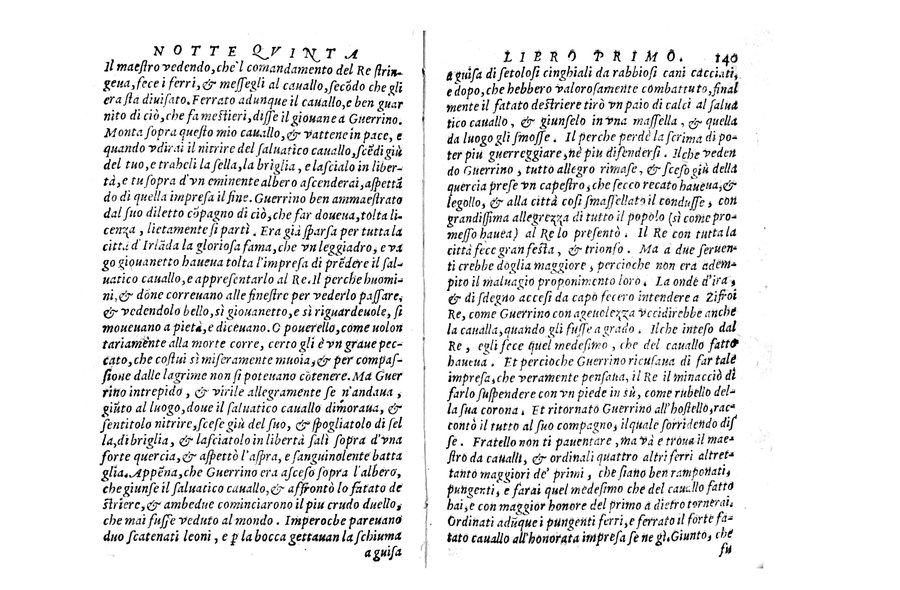 NOTTE QVINTA
Il maeſtro vedendo, che'l comandamento del Re ſtrin-
geua, fece i ferri, & meſſegli al cauallo, ſecōdo che gli
era ſta diuiſato. Ferrato adunque il cauallo, e ben guar
nito di ciò, che fa meſtieri, diſſe il giouane a Guerrino.
Monta ſopra queſto mio cauallo, & vattene in pace, e
quando vdirai il nitrire del ſaluatico cauallo, ſcēdi giù
del tuo, e traheli la ſella, la briglia, e laſcialo in liber-
tà, e tu ſopra d'vn eminente albero aſcenderai, aſpettā
do di quella impreſa il fine. Guerrino ben ammaeſtrato
dal ſuo diletto cōpagno di ciò, che far doueua, tolta li-
cenza, lietamente ſi partì. Era già ſparſa per tutta la
città d'Irlāda la glorioſa fama, che vn leggiadro, e va
go giouanetto haueua tolta l'impreſa di prēdere il ſal-
uatico cauallo, e appreſentarlo al Re. Il perche huomi-
ni, & dōne correuano alle fineſtre per vederlo paſſare,
& vedendolo bello, sì giouanetto, e sì riguardeuole, ſi
moueuano a pietà, e diceuano. O pouerello, come uolon
tariamente alla morte corre, certo gli è vn graue pec-
cato, che coſtui sì miſeramente muoia, & per compaſ-
ſione dalle lagrime non ſi poteuano cōtenere. Ma Guer
rino intrepido, & virile allegramente ſe n'andaua,
giūto al luogo, doue il ſaluatico cauallo dimoraua, &
ſentitolo nitrire, ſceſe giù del ſuo, & ſpogliatolo di ſel
la, di briglia, & laſciatolo in libertà ſalì ſopra d'vna
forte quercia, & aſpettò l'aſpra, e ſanguinolente batta
glia. Appēna, che Guerrino era aſceſo ſopra l'albero,
che giunſe il ſaluatico cauallo, & affrontò lo fatato de
ſtriere, & ambedue cominciarono il piu crudo duello,
che mai fuſſe veduto al mondo. Imperoche pareuano
duo ſcatenati leoni, e ꝑ la bocca gettauan la ſchiuma
a guiſa
LIBRO PRIMO. 140
a guiſa di ſetoloſi cinghiali da rabbioſi cani cacciati,
e dopo, che hebbero valoroſamente combattuto, final
mente il fatato deſtriere tirò vn paio di calci al ſalua
tico cauallo, & giunſelo in vna maſſella, & quella
da luogo gli ſmoſſe. Il perche perdè la ſcrima di po-
ter piu guerreggiare, nè piu difenderſi. Ilche veden
do Guerrino, tutto allegro rimaſe, & ſceſo giù della
quercia preſe vn capeſtro, che ſecco recato haueua, &
legollo, & alla città coſi ſmaſſellato il conduſſe, con
grandiſſima allegrezza di tutto il popolo (sì come pro-
meſſo hauea) al Re lo preſentò. Il Re con tutta la
città fece gran feſta, & trionfo. Ma a due ſeruen-
ti crebbe doglia maggiore, percioche non era adem-
pito il maluagio proponimento loro. La onde d'ira,
& di ſdegno acceſi da capo fecero intendere a Zifroi
Re, come Guerrino con ageuolezza vccidirebbe anche
la caualla, quando gli fuſſe a grado. Ilche inteſo dal
Re, egli fece quel medeſimo, che del cauallo fatto
haueua. Et percioche Guerrino ricuſaua di far tale
impreſa, che veramente penſaua, il Re il minacciò di
farlo ſuſpendere con vn piede in sù, come rubello del-
la ſua corona. Et ritornato Guerrino all'hoſtello, rac-
contò il tutto al ſuo compagno, il quale ſorridendo diſ
ſe. Fratello non ti pauentare, ma và e troua il mae-
ſtro da caualli, & ordinali quattro altri ferri altret-
tanto maggiori de' primi, che ſiano ben ramponati,
pungenti, e farai quel medeſimo che del cauallo fatto
hai, e con maggior honore del primo a dietro tornerai.
Ordinati adūque i pungenti ferri, e ferrato il forte fa-
tato cauallo all'honorata impreſa ſe ne gì. Giunto, che
fu